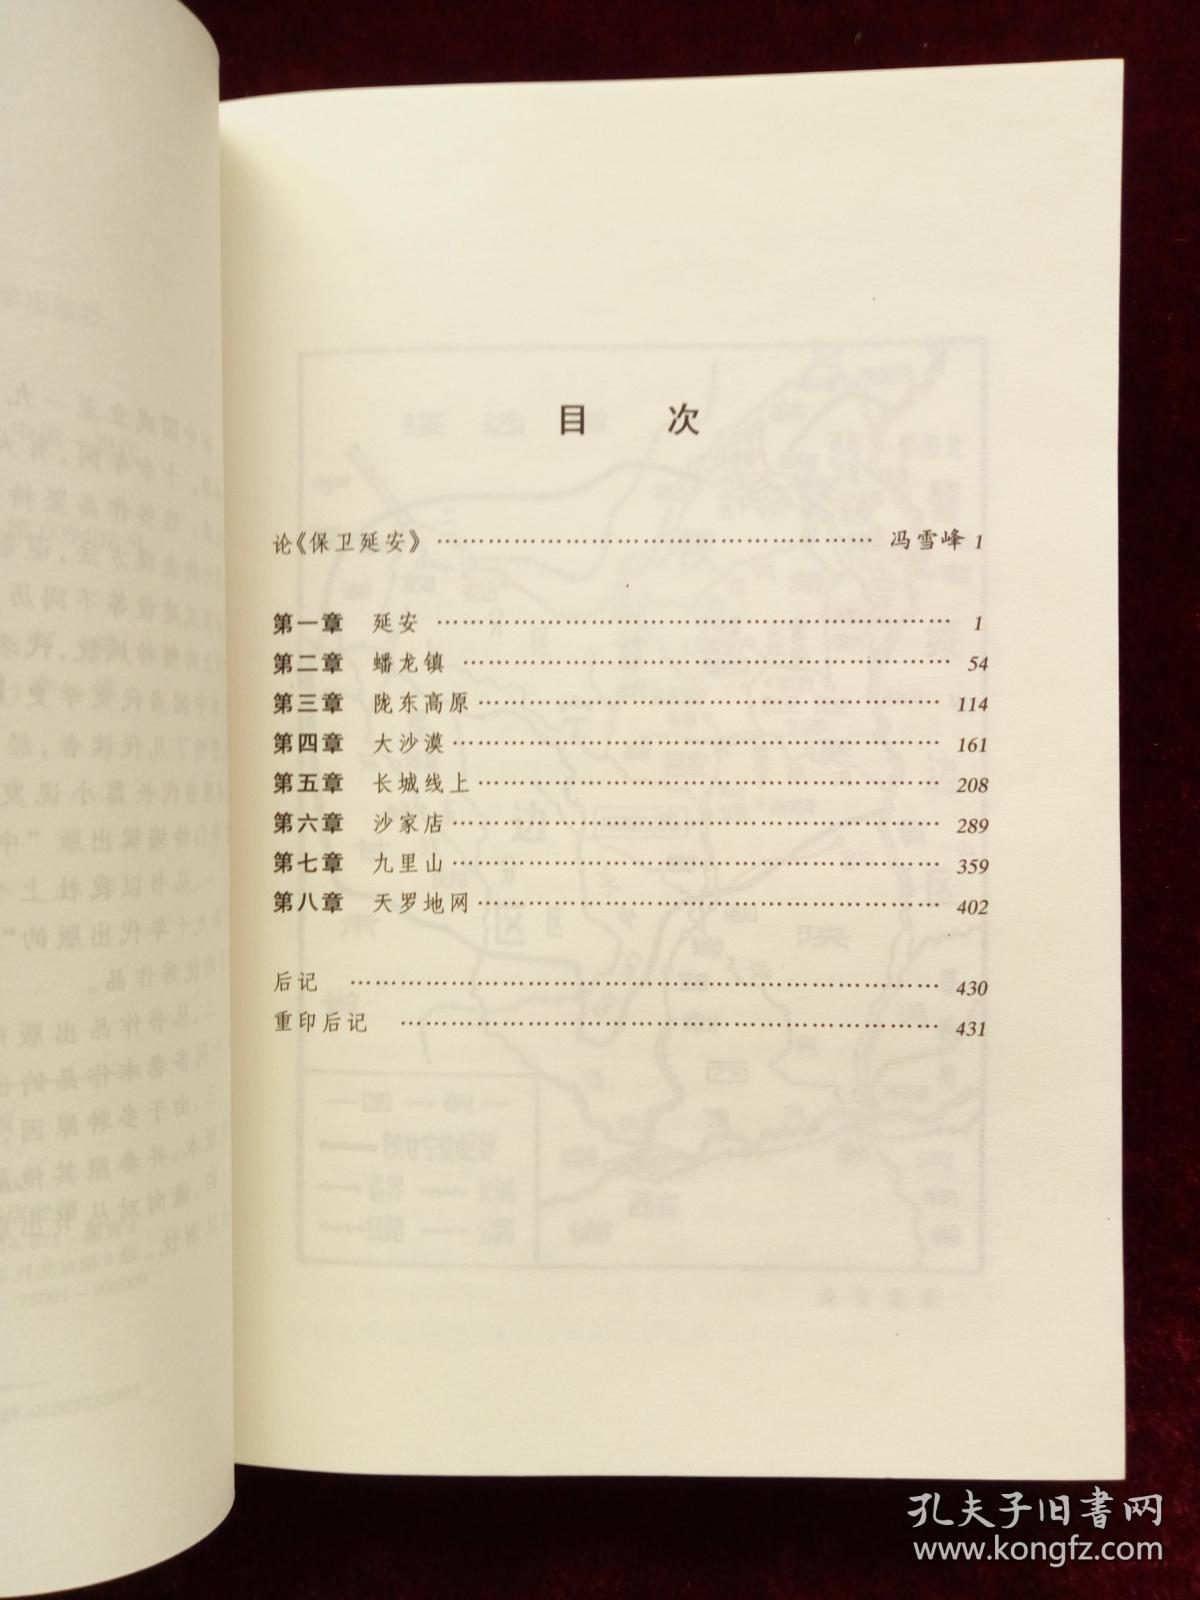 目 次
论《保卫延安》 …… 冯雪峰 1
第一章 延安 …… 1
第二章 蟠龙镇 …… 54
第三章 陇东高原 …… 114
第四章 大沙漠 …… 161
第五章 长城线上 …… 208
第六章 沙家店 …… 289
第七章 九里山 …… 359
第八章 天罗地网 …… 402
后记 …… 430
重印后记 …… 431
孔夫子旧书网
www.kongfz.com